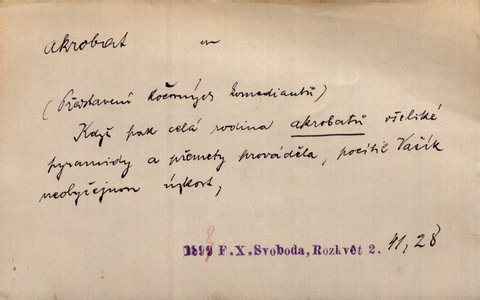 akrobat m
(Představení kočovných komediantů)
Když pak celá rodina akrobatů všeliké
pyramidy a přemety prováděla, pocítil Vašík
neobyčejnou úzkost,
1898 F. X. Svoboda, Rozkvět 2. 41, 28